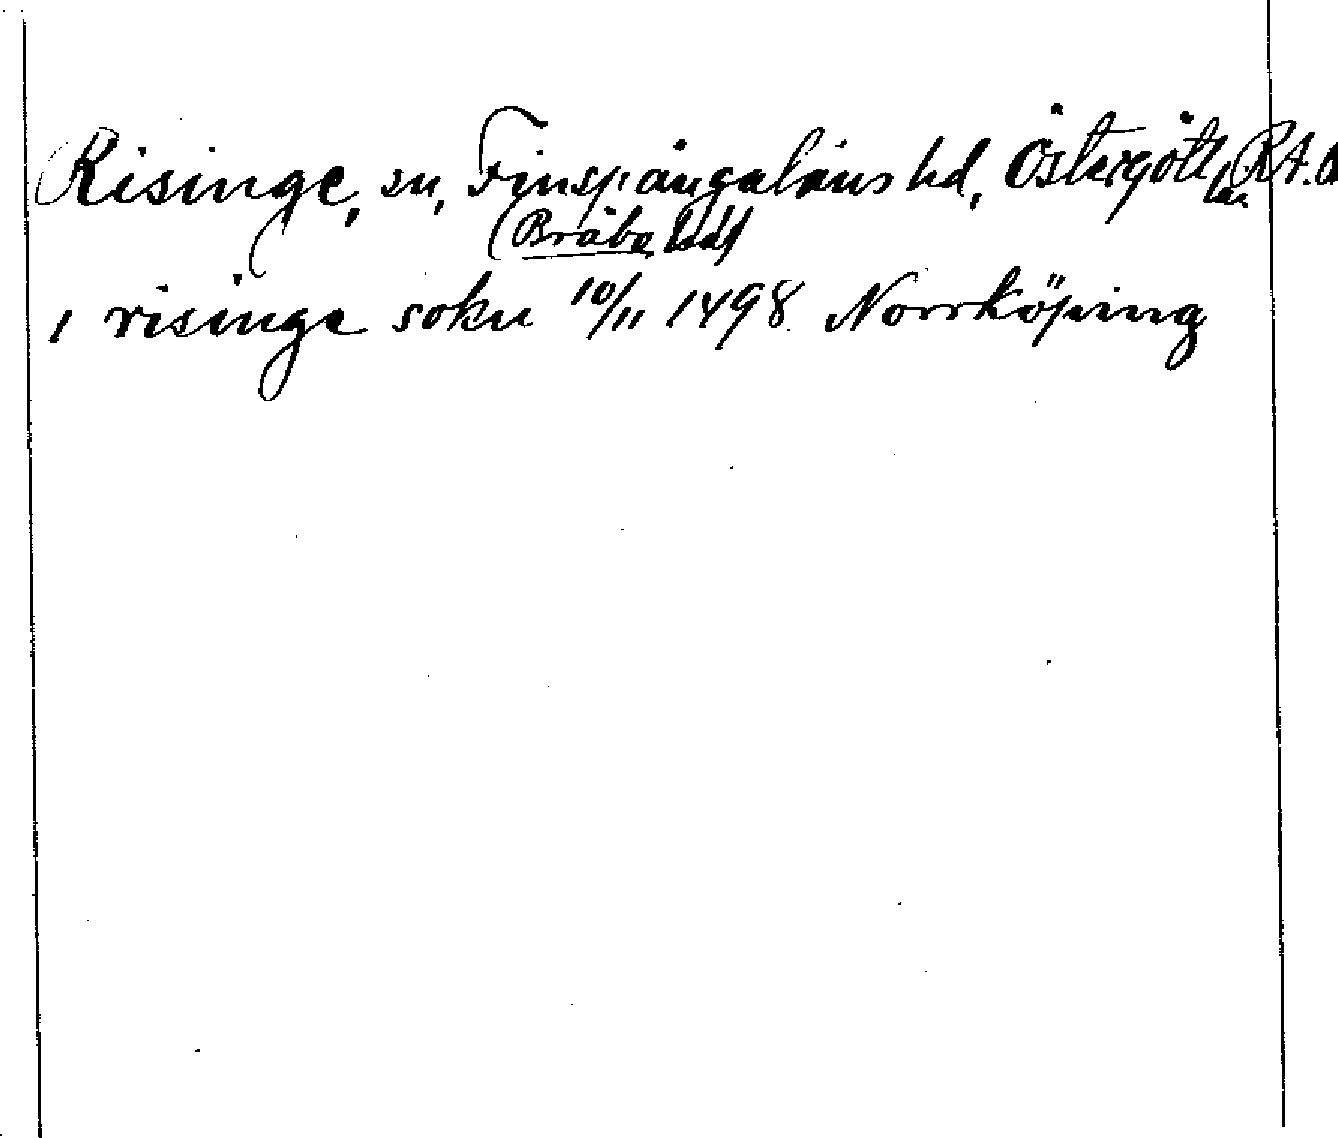 Risinge, sn, Finspångaläns hd, Östergötl. län. RA. O
(Bråbo hd)
i risinge sokn 10/11 1498 Norrköping